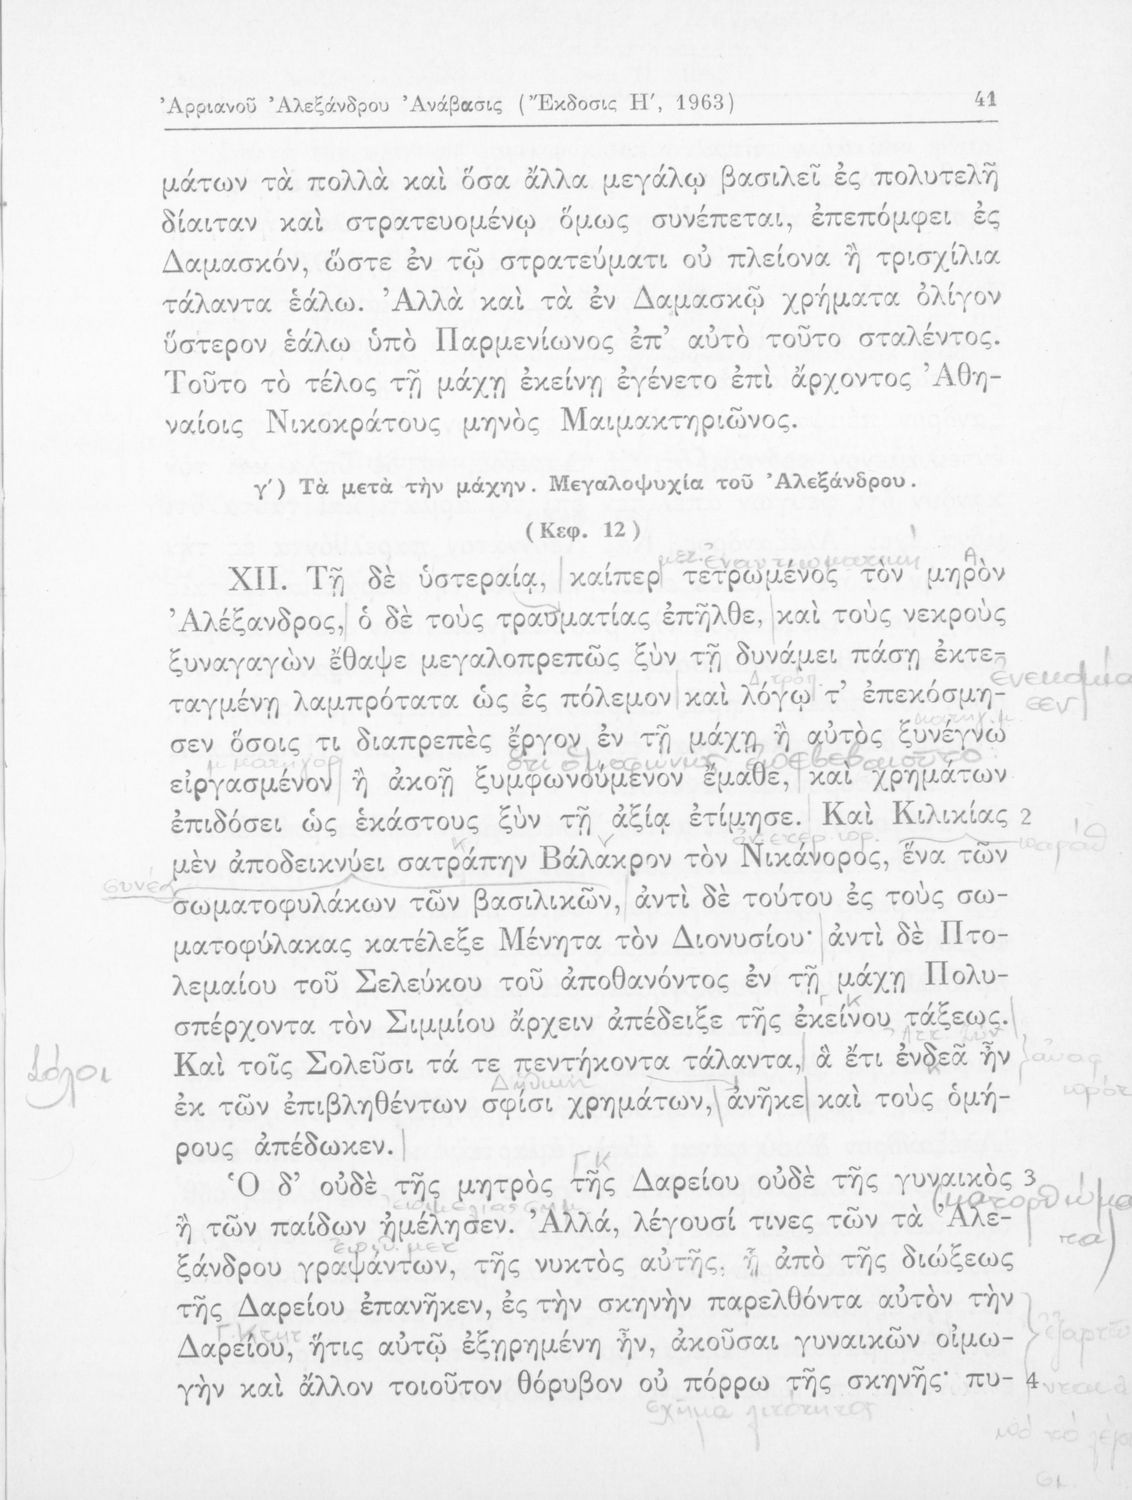 Ἀρριανοῦ Ἀλεξάνδρου Ἀνάβασις (Ἔκδοσις Η′, 1963) 41
μάτων τὰ πολλὰ καὶ ὅσα ἄλλα μεγάλῳ βασιλεῖ ἐς πολυτελῆ
δίαιταν καὶ στρατευομένῳ ὅμως συνέπεται, ἐπεπόμφει ἐς
Δαμασκόν, ὥστε ἐν τῷ στρατεύματι οὐ πλείονα ἢ τρισχίλια
τάλαντα ἑάλω. Ἀλλὰ καὶ τὰ ἐν Δαμασκῷ χρήματα ὀλίγον
ὕστερον ἑάλω ὑπὸ Παρμενίωνος ἐπ’ αὐτὸ τοῦτο σταλέντος.
Τοῦτο τὸ τέλος τῇ μάχῃ ἐκείνῃ ἐγένετο ἐπὶ ἄρχοντος Ἀθη-
ναίοις Νικοκράτους μηνὸς Μαιμακτηριῶνος.
γ′) Τὰ μετὰ τὴν μάχην. Μεγαλοψυχία τοῦ Ἀλεξάνδρου.
(Κεφ. 12)
XII. Τῇ δὲ ὑστεραίᾳ, καίπερ τετρωμένος τὸν μηρὸν
Ἀλέξανδρος, ὁ δὲ τοὺς τραυματίας ἐπῆλθε, καὶ τοὺς νεκροὺς
ξυναγαγὼν ἔθαψε μεγαλοπρεπῶς ξὺν τῇ δυνάμει πάσῃ ἐκτε-
ταγμένῃ λαμπρότατα ὡς ἐς πόλεμον καὶ λόγῳ τ’ ἐπεκόσμη-
σεν ὅσοις τι διαπρεπὲς ἔργον ἐν τῇ μάχῃ ἢ αὐτὸς ξυνέγνω
εἰργασμένον ἢ ἀκοῇ ξυμφωνούμενον ἔμαθε, καὶ χρημάτων
ἐπιδόσει ὡς ἑκάστους ξὺν τῇ ἀξίᾳ ἐτίμησε. Καὶ Κιλικίας 2
μὲν ἀποδεικνύει σατράπην Βάλακρον τὸν Νικάνορος, ἕνα τῶν
σωματοφυλάκων τῶν βασιλικῶν, ἀντὶ δὲ τούτου ἐς τοὺς σω-
ματοφύλακας κατέλεξε Μένητα τὸν Διονυσίου· ἀντὶ δὲ Πτο-
λεμαίου τοῦ Σελεύκου τοῦ ἀποθανόντος ἐν τῇ μάχῃ Πολυ-
σπέρχοντα τὸν Σιμμίου ἄρχειν ἀπέδειξε τῆς ἐκείνου τάξεως.
Καὶ τοῖς Σολεῦσι τά τε πεντήκοντα τάλαντα, ἃ ἔτι ἐνδεᾶ ἦν
Σόλοι
ἐκ τῶν ἐπιβληθέντων σφίσι χρημάτων, ἀνῆκε καὶ τοὺς ὁμή-
ρους ἀπέδωκεν.
Ὁ δ’ οὐδὲ τῆς μητρὸς τῆς Δαρείου οὐδὲ τῆς γυναικὸς 3
ἢ τῶν παίδων ἠμέλησεν. Ἀλλά, λέγουσί τινες τῶν τὰ Ἀλε-
ξάνδρου γραψάντων, τῆς νυκτὸς αὐτῆς, ᾗ ἀπὸ τῆς διώξεως
τῆς Δαρείου ἐπανῆκεν, ἐς τὴν σκηνὴν παρελθόντα αὐτὸν τὴν
Δαρείου, ἥτις αὐτῷ ἐξῃρημένη ἦν, ἀκοῦσαι γυναικῶν οἰμω-
γὴν καὶ ἄλλον τοιοῦτον θόρυβον οὐ πόρρω τῆς σκηνῆς· πυ- 4
σχῆμα λιτότητος